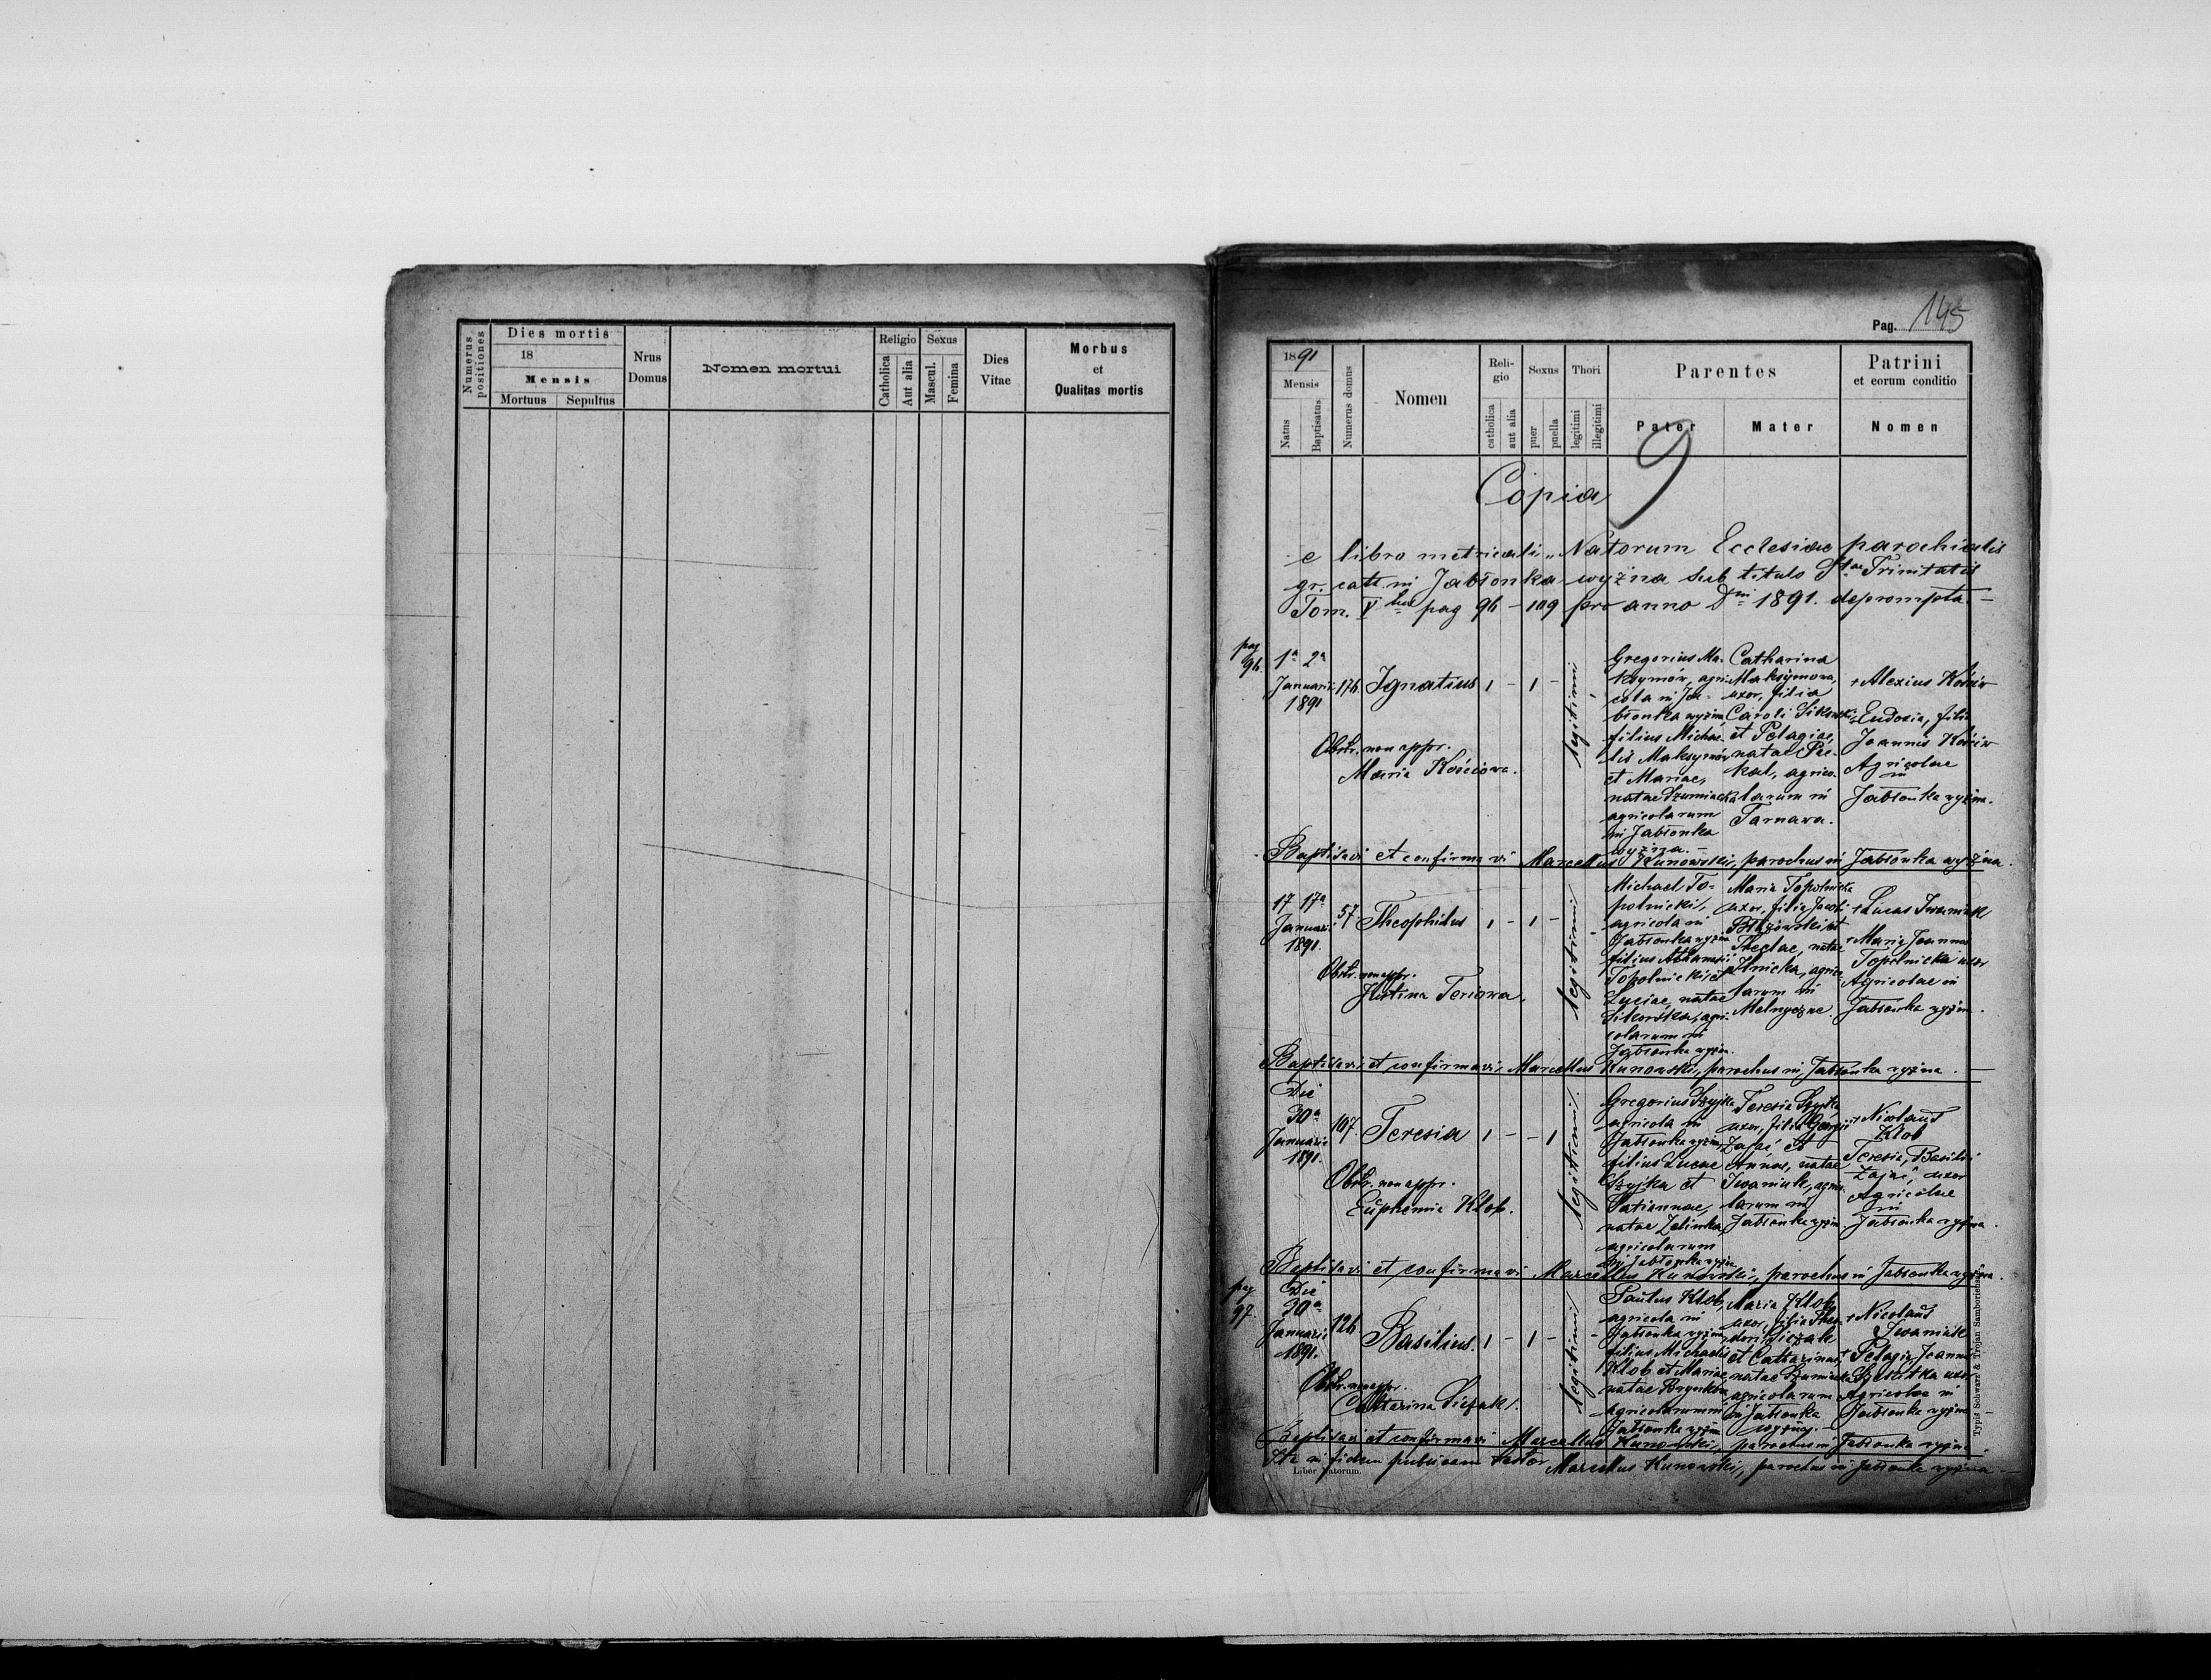 Numerus positiones
Dies mortis
18
Mensis
Mortuus Sepultus
Nrus Domus
Nomen mortui
Religio
Catholica
Aut alia
Sexus
Mascul.
Femina
Dies Vitae
Morbus
et
Qualitas mortis
Pag. 145
1891
Mensis
Natus
Baptisatus
Numerus domus
Nomen
Reli-
gio
catholica
aut alia
Sexus
puer
puella
Thori
legitimi
illegitimi
Parentes
Pater Mater
Patrini
et eorum conditio
Nomen
9
Copia
e libro metricali „Natorum Ecclesiae parochialis
gr. cath. in Jabłonka wyżna sub titulo Stae Trinitatis
Tom. V pag 96 – 109 pro anno Dni 1891. deprompta. –
pag 96.
1a 2a
Januarii
1891
176. Ignatius 1 – 1 –
legitimi
Obstr. non appr.
Maria Kościowa.
Gregorius Ma-
ksymów, agri-
cola in Ja-
błonka wyżna,
filius Michae-
lis Maksymów
et Mariae,
natae Szumiacka
agricolarum
in Jabłonka
wyżna. –
Catharina
Maksymowa,
uxor, filia
Caroli Sikorski
et Pelagiae,
natae
agrico-
larum in
Tarnawa.
+ Alexius Kościw
Eudoxia, filia
Joannis Kościw
Agricolae
in
Jabłonka wyżna.
Baptisavi et confirmavi Marcellus Kunowski, parochus in Jabłonka wyżna.
17 17a
Januarii
1891.
57 Theophilus 1 – 1 –
legitimi
Obstr. non appr.
Justina Teriowa.
Michael To-
polnicki,
agricola in
Jabłonka wyżna
filius Athanasii
Topolnicki et
Luciae, natae
Sikorska, agri-
colarum in
Jabłonka wyżna.
Maria Topolnicka
uxor, filia
et
Theclae, natae
Ilnicka, agrico-
larum in
Melnyczne.
+ Lucas Iwaniuk
+ Maria Joannis
Topolnicka uxor
Agricolae in
Jabłonka wyżna.
Baptisavi et confirmavi, Marcellus Kunowski, parochus in Jabłonka wyżna. –
Die
30a
Januarii
1891.
107. Teresia 1 – – 1
legitimi
Obstr. non appr.
Euphemia Kłob.
Gregorius Szyjka
agricola in
Jabłonka wyżna,
filius Lucae
Szyjka et
Tatiannae,
natae Zelinka,
agricolarum
in Jabłonka wyżna
Teresia Szyjka
uxor, filia Georgii
Zając et
Annae, natae
Iwaniuk, agrico-
larum in
Jabłonka wyżna.
+ Nicolaus
Kłob
Teresia, Basilii
Zając, uxor
Agricolae
in
Jabłonka wyżna.
Baptisavi et confirmavi Marcellus Kunowski, parochus in Jabłonka wyżna.
pag 97.
Die
30a
Januarii
1891.
126 Basilius. 1 – 1 –
legitimi
Obstr. non appr.
Catharina
Paulus Kłob,
agricola in
Jabłonka wyżna
filius Michaelis
Kłob et Mariae
natae
agricolarum in
Jabłonka wyżna
Maria Kłob,
uxor, filia Theo-
dori
et Catharinae,
natae Szumiacka
agricolarum
in Jabłonka
wyżna. –
+ Nicolaus
Iwaniuk
+ Pelagia, Joannis
uxor
Agricolae in
Jabłonka wyżna
Baptisavi et confirmavi Marcellus Kunowski, parochus in Jabłonka wyżna.
in fidem publicam testor Marcellus Kunowski, parochus in Jabłonka wyżna –
Liber Natorum.
Typis Schwarz & Trojan Samboriensis.